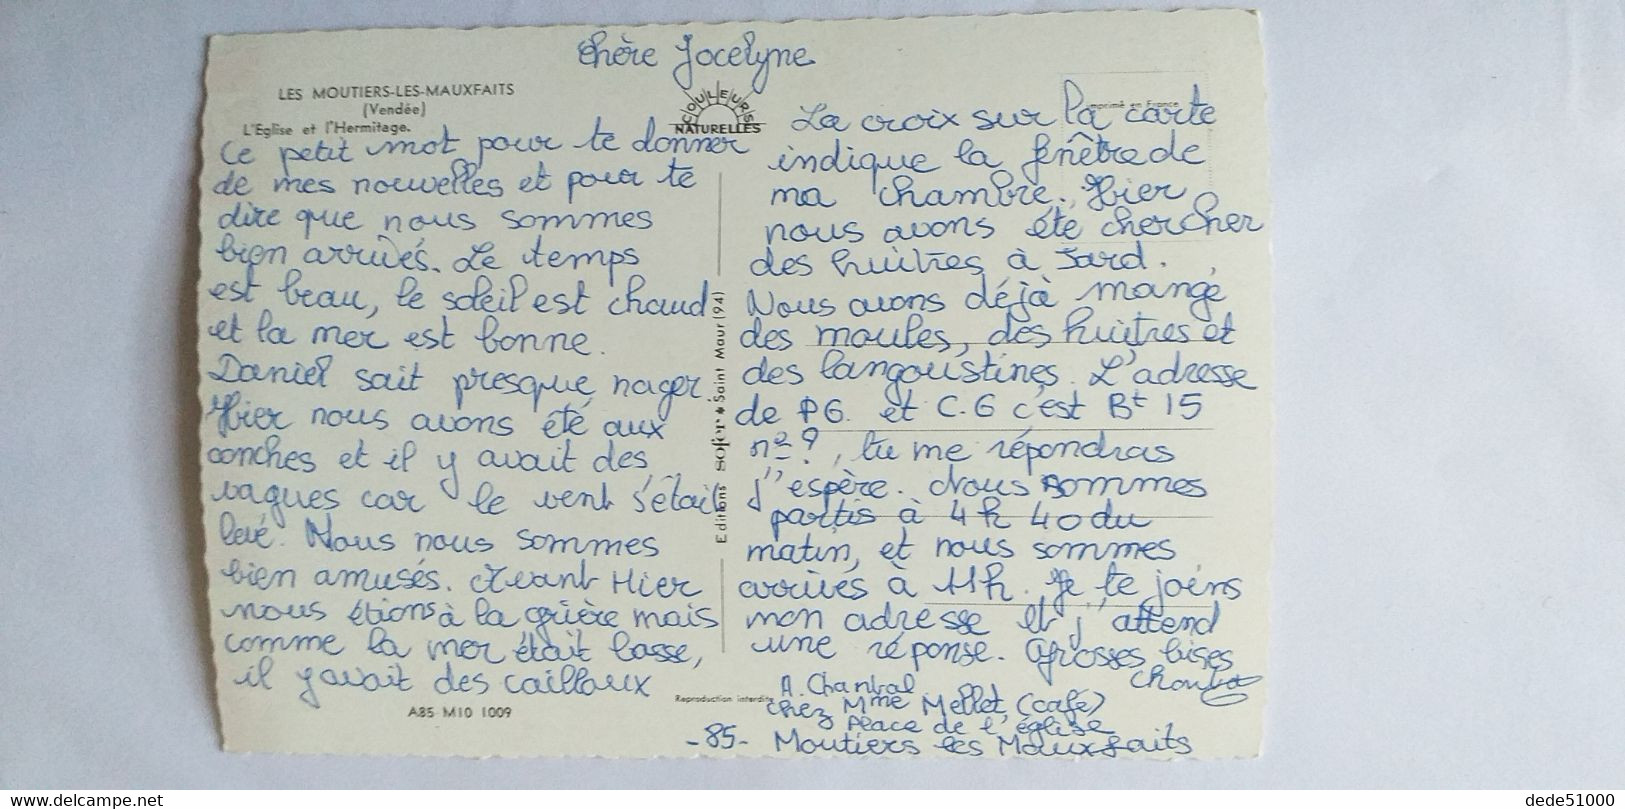 Chère Jocelyne
LES MOUTIERS-LES-MAUXFAITS
(Vendée)
L'Eglise et l'Hermitage.
COULEURS
NATURELLES
Imprimé en France
Ce petit mot pour te donner
de mes nouvelles et pour te
dire que nous sommes
bien arrivés. Le temps
est beau, le soleil est chaud
et la mer est bonne.
Daniel sait presque nager
Hier nous avons été aux
conches et il y avait des
vagues car le vent s'était
levé. Nous nous sommes
bien amusés. Avant Hier
nous étions à la grière mais
comme la mer était basse,
il y avait des cailloux
A85 M10 1009
Editions sofer * Saint Maur (94)
Reproduction interdite
La croix sur la carte
indique la fenêtre de
ma chambre. Hier
nous avons été chercher
des huîtres à Jard.
Nous avons déjà mangé
des moules, des huîtres et
des langoustines. L'adresse
de P6. et C.6 c'est Bt 15
nº ?, tu me répondras
j'espère. Nous sommes
partis à 4h 40 du
matin, et nous sommes
arrivés à 11h. Je te joins
mon adresse et j'attend
une réponse. Grosses bises
Chantal
A. Chantal
chez Mme Mellet (café)
Place de l'église
-85- Moutiers les Mauxfaits
dede51000